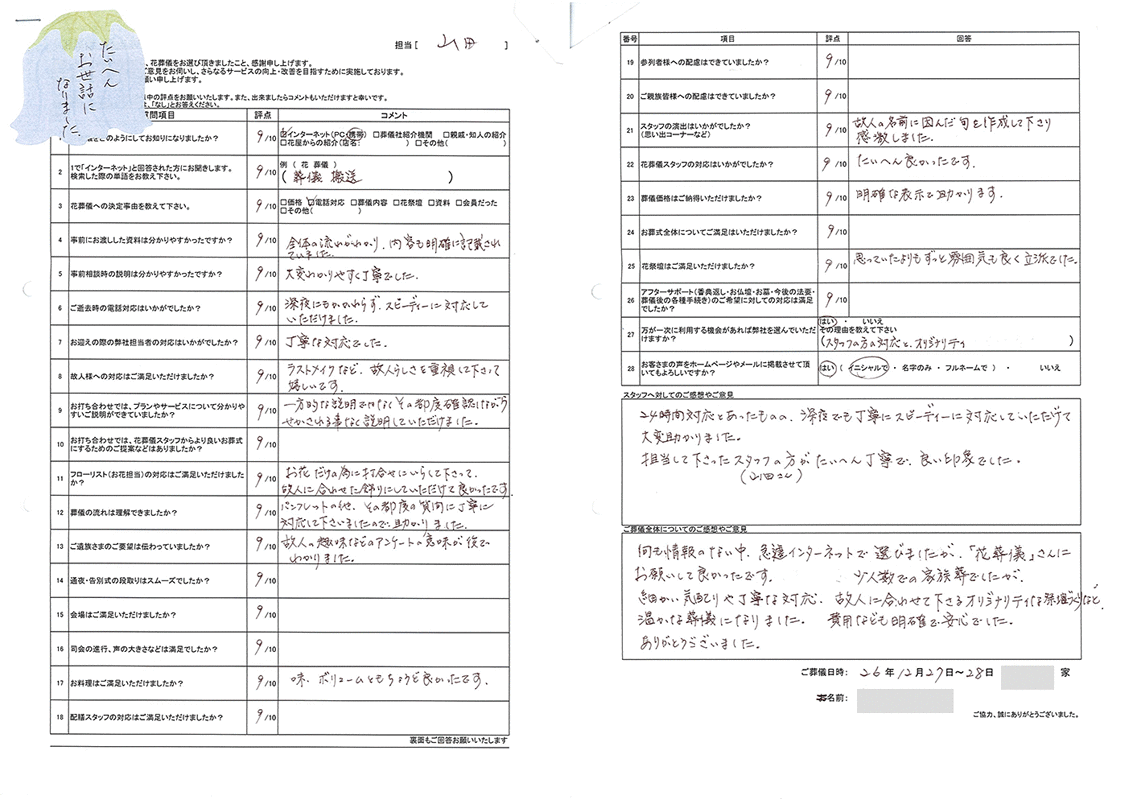 たいへん
お世話に
なりました。
担当[ 山田 ]
、花葬儀をお選び頂きましたこと、感謝申し上げます。
ご意見をお伺いし、さらなるサービスの向上・改善を目指すために実施しております。
願い申し上げます。
中の評点をお願いいたします。また、出来ましたらコメントもいただけますと幸いです。
、「なし」とお答えください。
質問項目 評点 コメント
をどのようにしてお知りになりましたか? 9/10 ☑インターネット(PC・携帯) □葬儀社紹介機関 □親戚・知人の紹介
□花屋からの紹介(店名: ) □その他( )
2 1で「インターネット」と回答された方にお聞きします。
検索した際の単語をお教え下さい。 9/10 例 ( 花 葬儀 )
( 葬儀 搬送 )
3 花葬儀への決定事由を教えて下さい。 9/10 □価格 ☑電話対応 □葬儀内容 □花祭壇 □資料 □会員だった
□その他( )
4 事前にお渡しした資料は分かりやすかったですか? 9/10 全体の流れがわかり、内容も明確に記載され
ていました。
5 事前相談時の説明は分かりやすかったですか? 9/10 大変わかりやすく丁寧でした。
6 ご逝去時の電話対応はいかがでしたか? 9/10 深夜にもかかわらず、スピーディーに対応して
いただけました。
7 お迎えの際の弊社担当者の対応はいかがでしたか? 9/10 丁寧な対応でした。
8 故人様への対応はご満足いただけましたか? 9/10 ラストメイクなど、故人らしさを重視して下さって
嬉しいです。
9 お打ち合わせでは、プランやサービスについて分かりや
すいご説明ができていましたか? 9/10 一方的な説明でなくその都度確認しながら
せかされる事なく説明していただけました。
10 お打ち合わせでは、花葬儀スタッフからより良いお葬式
にするためのご提案などはありましたか? 9/10
11 フローリスト(お花担当)の対応はご満足いただけました
か? 9/10 お花だけの為に打合せにいらして下さって、
故人に合わせた飾りにしていただけて良かったです。
12 葬儀の流れは理解できましたか? 9/10 パンフレットの他、その都度の質問に丁寧に
対応して下さいましたので助かりました。
13 ご遺族さまのご要望は伝わっていましたか? 9/10 故人の趣味などのアンケートの意味が後で
わかりました。
14 通夜・告別式の段取りはスムーズでしたか? 9/10
15 会場はご満足いただけましたか? 9/10
16 司会の進行、声の大きさなどは満足でしたか? 9/10
17 お料理はご満足いただけましたか? 9/10 味、ボリュームともちょうど良かったです。
18 配膳スタッフの対応はご満足いただけましたか? 9/10
裏面もご回答お願いいたします
番号 項目 評点 回答
19 参列者様への配慮はできていましたか? 9/10
20 ご親族皆様への配慮はできていましたか? 9/10
21 スタッフの演出はいかがでしたか?
(思い出コーナーなど) 9/10 故人の名前に因んだ句を作成して下さり
感激しました。
22 花葬儀スタッフの対応はいかがでしたか? 9/10 たいへん良かったです。
23 葬儀価格はご納得いただけましたか? 9/10 明確な表示で助かります。
24 お葬式全体についてご満足はいただけましたか? 9/10
25 花祭壇はご満足いただけましたか? 9/10 思っていたよりもずっと雰囲気も良く立派でした。
26 アフターサポート(香典返し・お仏壇・お墓・今後の法要・
葬儀後の各種手続き)のご希望に対しての対応は満足
でしたか? 9/10
27 万が一次に利用する機会があれば弊社を選んでいただ
けますか? はい ・ いいえ
その理由を教えて下さい
(スタッフの方の対応と、オリジナリティ )
28 お客さまの声をホームページやメールに掲載させて頂
いてもよろしいですか? はい ( イニシャルで ・ 名字のみ ・ フルネームで ) ・ いいえ
スタッフへ対してのご感想やご意見
24時間対応とあったものの、深夜でも丁寧にスピーディーに対応していただけて
大変助かりました。
担当して下さったスタッフの方がたいへん丁寧で、良い印象でした。
(山田さん)
ご葬儀全体についてのご感想やご意見
何も情報のない中、急遽インターネットで選びましたが、「花葬儀」さんに
お願いして良かったです。 少人数での家族葬でしたが、
細かい気配りや丁寧な対応、故人に合わせて下さるオリジナリティな祭壇づくりなど、
温かな葬儀になりました。 費用なども明確で安心でした。
ありがとうございました。
ご葬儀日時: 26年12月27日~28日 家
お名前:
ご協力、誠にありがとうございました。